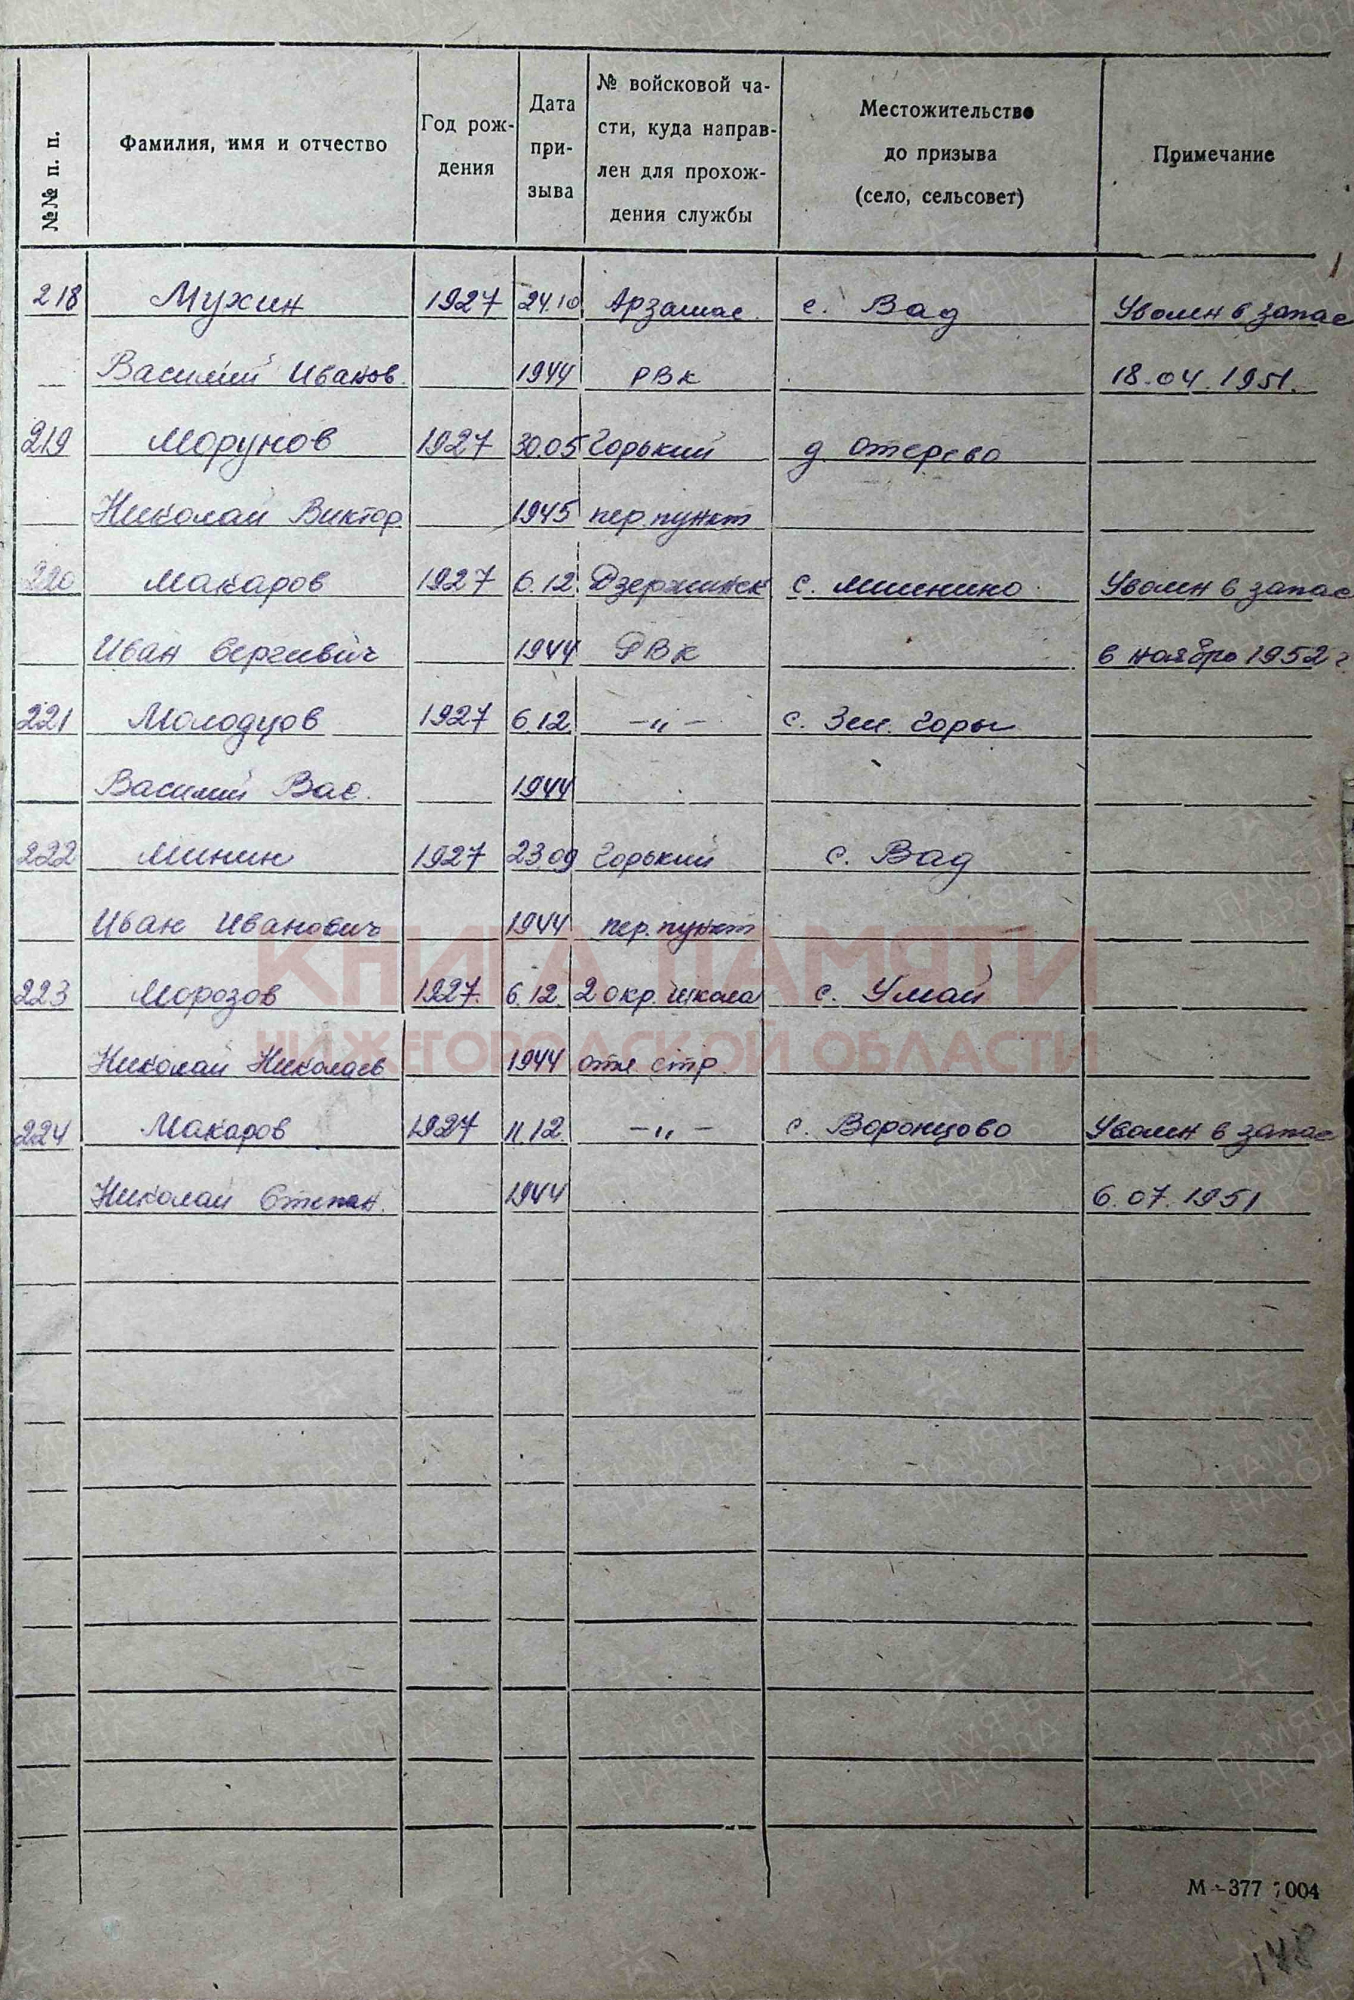 №№ п. п. Фамилия, имя и отчество Год рож-дения Дата при-зыва № войсковой ча-сти, куда направ-лен для прохож-дения службы Местожительство до призыва (село, сельсовет) Примечание
218 Мухин 1927 24.10 Арзамас. с. Вад Уволен в запас
Василий Иванов. 1944 РВК 18.04.1951.
219 Морунов 1927 30.05 Горький д. Отерево
Николай Виктор 1945 пер. пункт
220 Макаров 1927 6.12 Дзержинск с. Мишнино
Уволен в запас
Иван Сергеевич 1944 РВК в ноябре 1952 г
221 Молодцов 1927 6.12 -„- с. Зел. Горы
Василий Вас. 1944
222 Минин 1927 23.09 Горький с. Вад
Иван Иванович 1944 пер. пункт
223 Морозов 1927. 6.12. 2 окр. школа с. Умай
Николай Николаев 1944 отл стр.
224 Макаров 1927 11.12 -„- с. Воронцово Уволен в запас
Николай Степан. 1944 6.07.1951
КНИГА ПАМЯТИ
НИЖЕГОРОДСКОЙ ОБЛАСТИ
М-377 7004
148